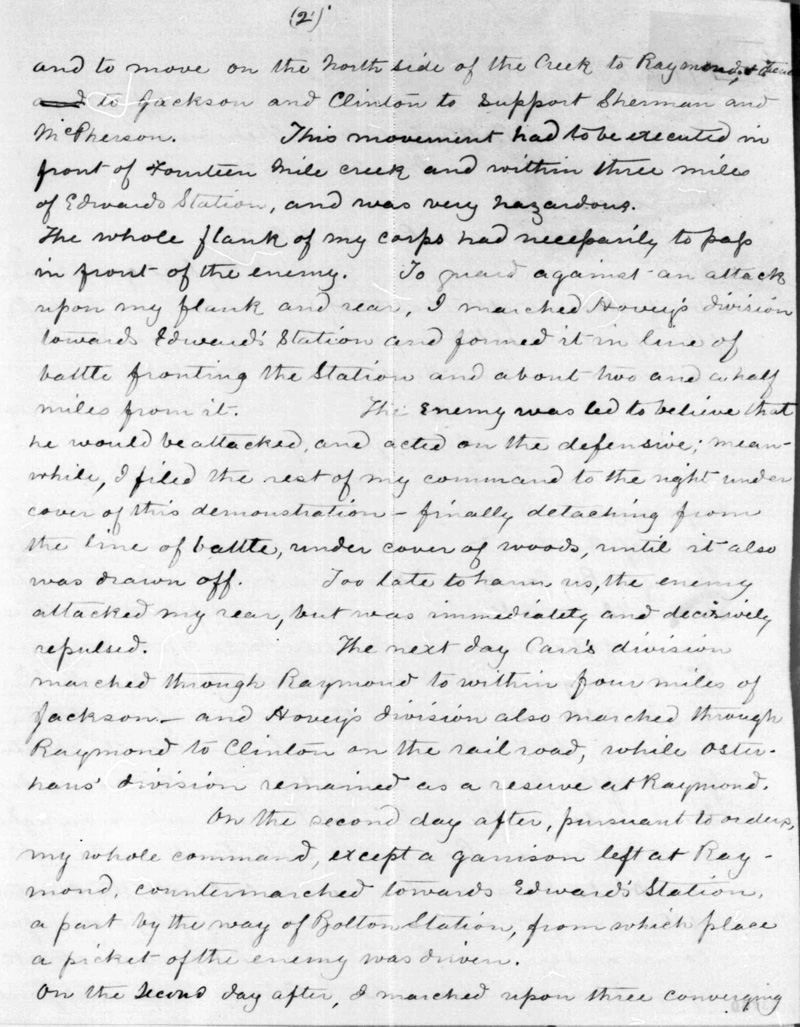 (2)
and to move on the North side of the Creek to Raymond, & thence
and to Jackson and Clinton to support Sherman and
McPherson. This movement had to be executed in
front of Fourteen Mile creek and within three miles
of Edwards Station, and was very hazardous.
The whole flank of my corps had necessarily to pass
in front of the enemy. To guard against an attack
upon my flank and rear, I marched Hovey's division
towards Edward's Station and formed it in line of
battle fronting the Station and about two and a half
miles from it. The Enemy was led to believe that
he would be attacked, and acted on the defensive; mean-
while, I filed the rest of my command to the right under
cover of this demonstration – finally detaching from
the line of battle, under cover of woods, until it also
was drawn off. Too late to harm us, the enemy
attacked my rear, but was immediately and decisively
repulsed. The next day Carr's division
marched through Raymond to within four miles of
Jackson – and Hovey's division also marched through
Raymond to Clinton on the rail road, while Oster-
haus' division remained as a reserve at Raymond.
On the second day after, pursuant to orders,
my whole command, except a garrison left at Ray-
mond, countermarched towards Edward's Station,
a part by the way of Bolton Station, from which place
a picket of the enemy was driven.
On the second day after, I marched upon three converging